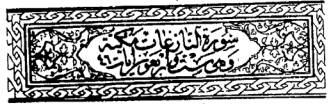 سورة النازعات مكية
وهي ست وأربعون آيات